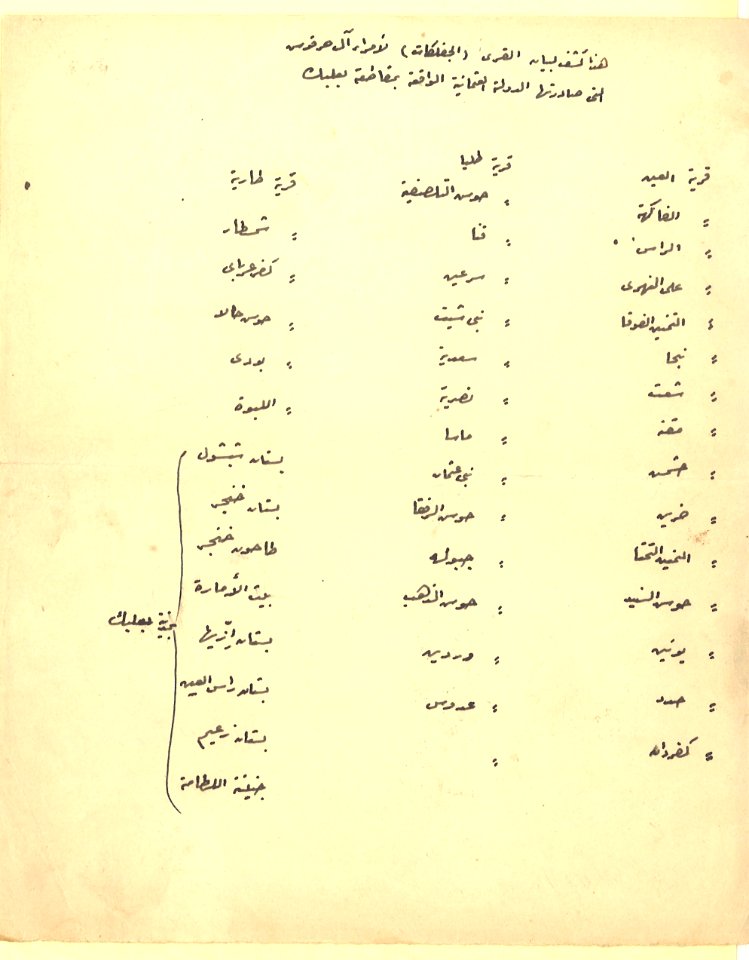 هذا كشف لبيان القرى (الجفلكات) لأمراء آل حرفوش
التي صادرتها الدولة العثمانية الواقعة بمقاطعة بعلبك
قرية العين
〃 الفاكهة
〃 الراس
〃 على النهرى
〃 التمنين الفوقا
〃 نبحا
〃 شعت
〃 مقنه
〃 حشمش
〃 ضريب
〃 التمنين التحتا
〃 حوش السنيد
〃 يونين
〃 حدد
〃 كفردان
قرية طليا
〃 حوش التلصفية
〃 قنا
〃 سرعين
〃 نبي شيت
〃 سعدية
〃 نصرية
〃 ماسا
〃 نبي عثمان
〃 حوش الرفقا
〃 جبوله
〃 حوش الذهب
〃 وردين
〃 عدوس
〃
قرية طارية
〃 شمطار
〃 كفر
〃 حوش حالا
〃 بودى
〃 اللبوة
بستان شبشول
بستان خنجر
طاحون خنجر
بيت الأمارة
بستان
بستان راس العين
بستان زعيم
جنينة اللطامة
بمدينة بعلبك